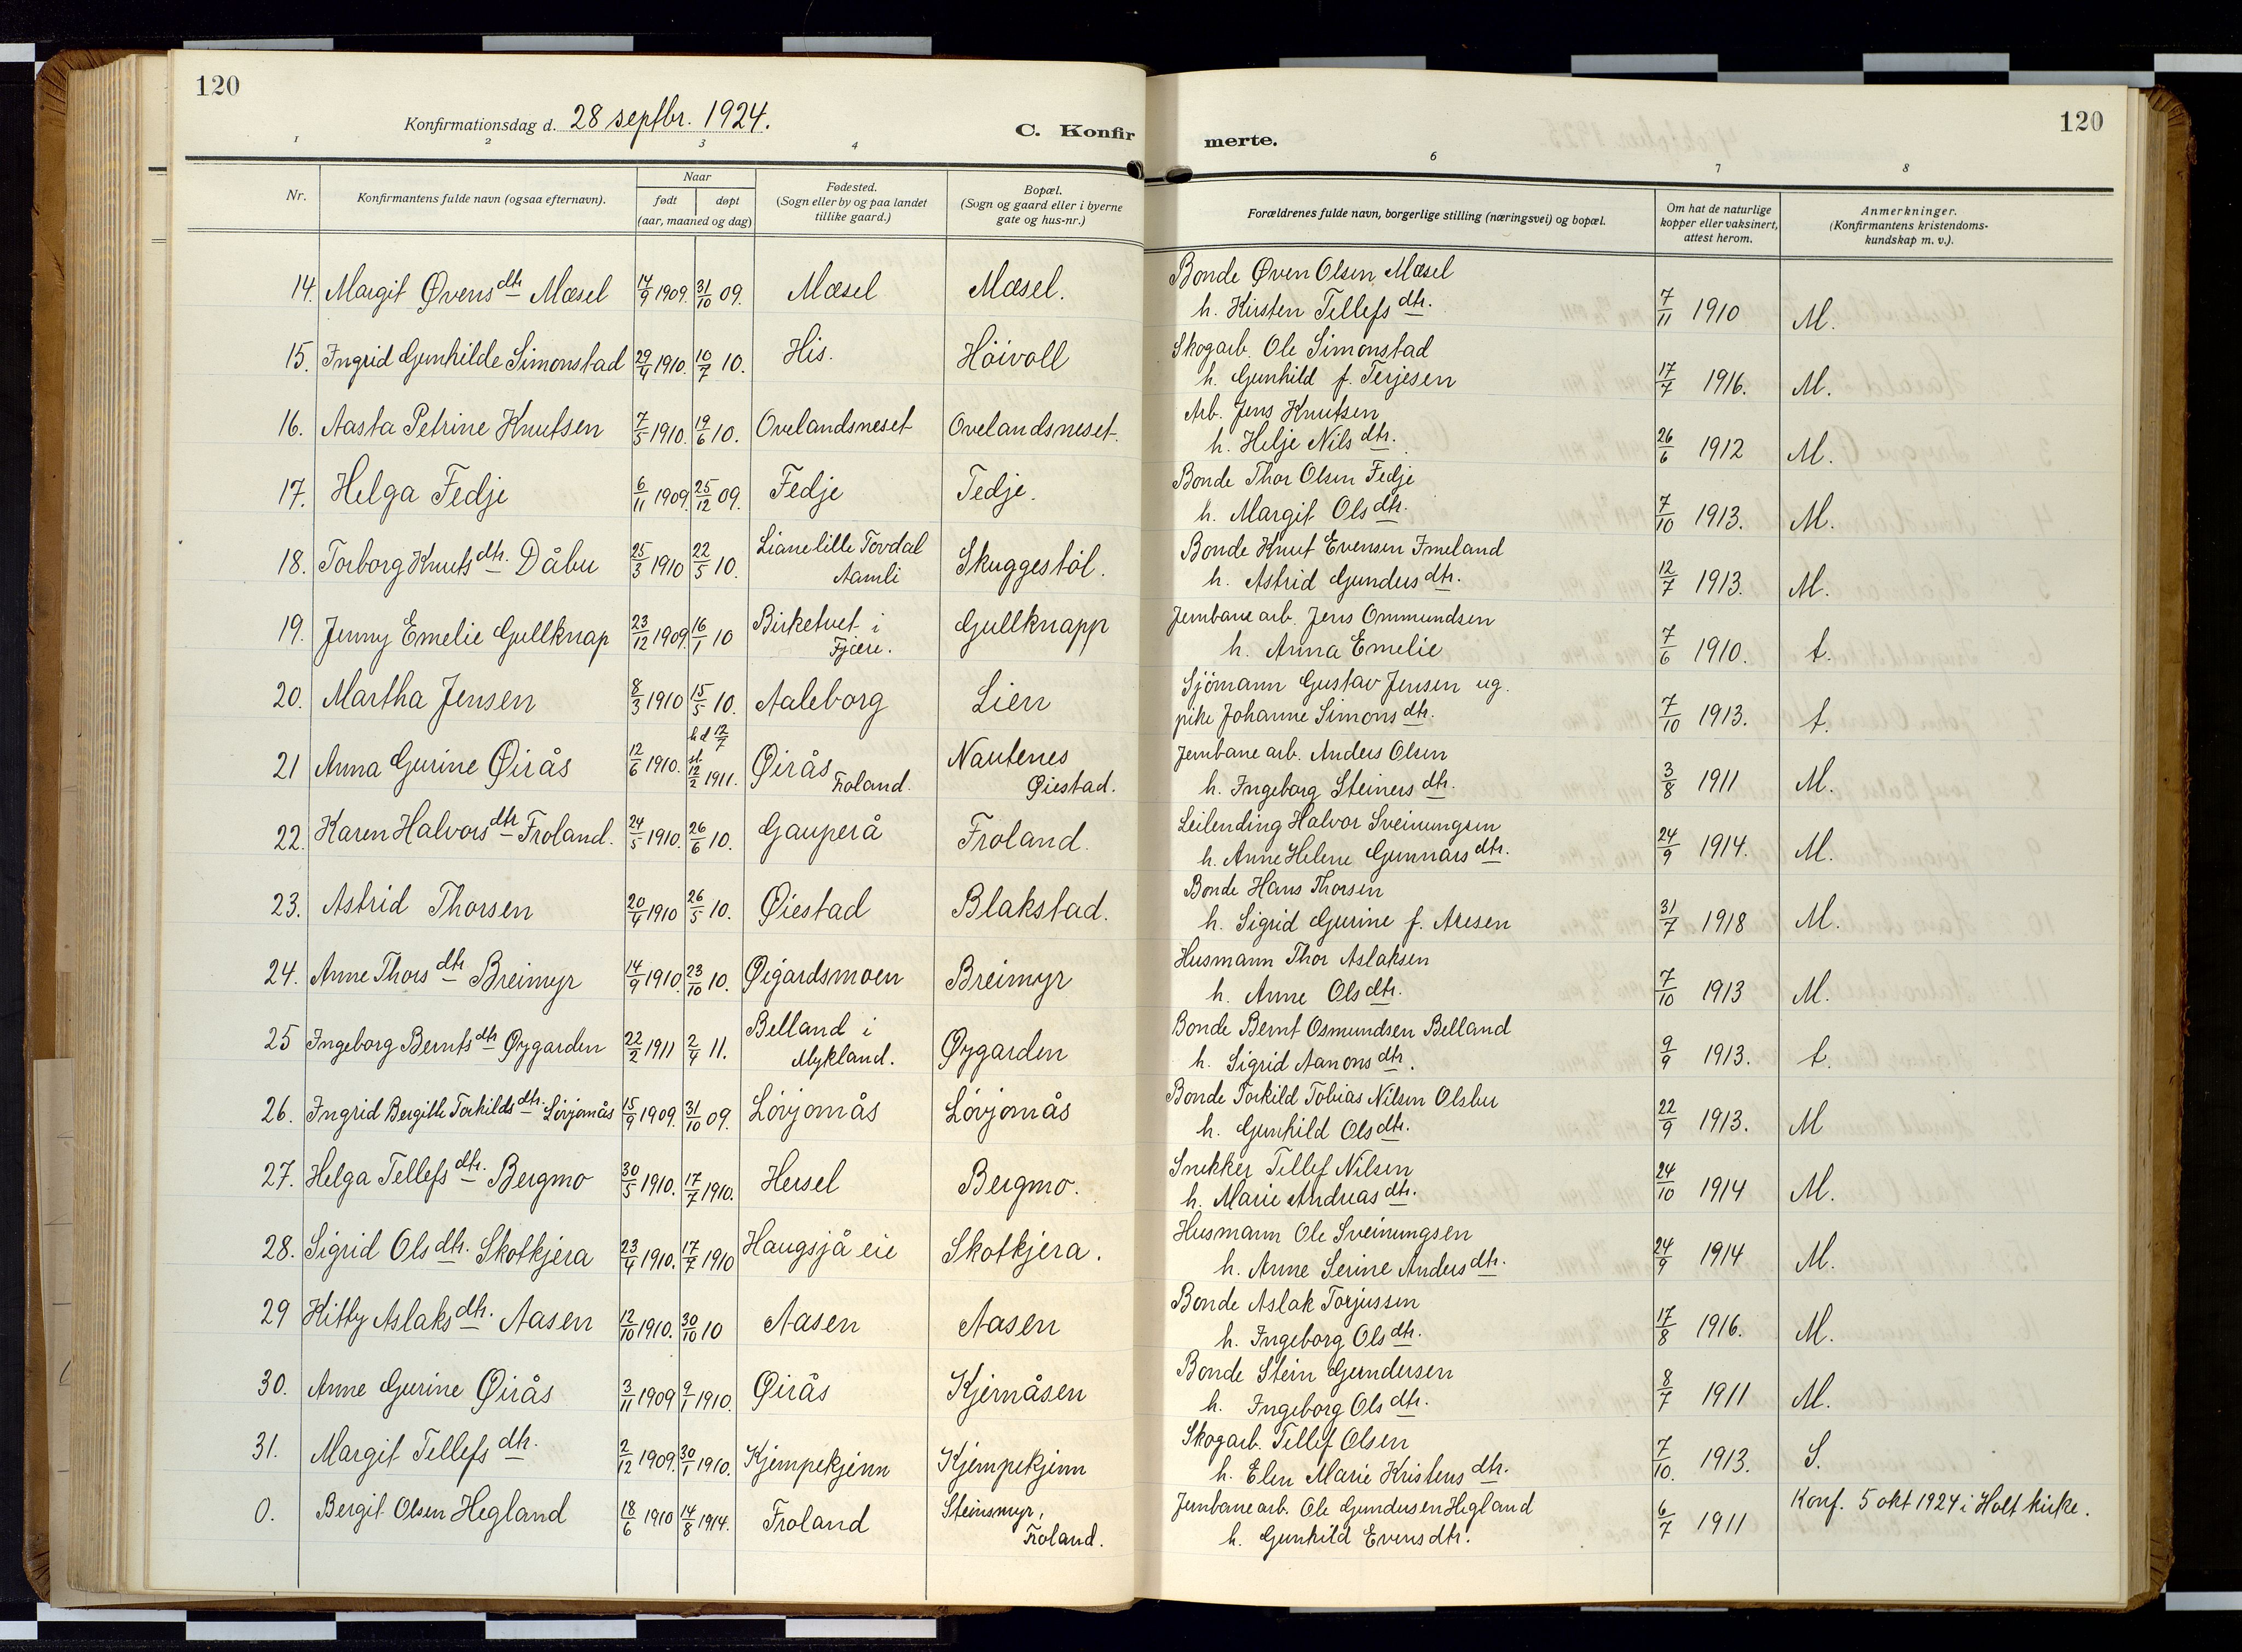 120
Konfirmationsdag d. 28 septbr. 1924.
C. Konfirmerte.
120
1 2 3 4 6 7 8
Nr. Konfirmantens fulde navn (ogsaa efternavn). Naar født døpt (aar, maaned og dag) Fødested. (Sogn eller by og paa landet tillike gaard.) Bopæl. (Sogn og gaard eller i byerne gate og hus-nr.) Forældrenes fulde navn, borgerlige stilling (næringsvei) og bopæl. Om hat de naturlige kopper eller vaksinert, attest herom. Anmerkninger. (Konfirmantens kristendomskundskap m. v.).
14. Margit Øvensdtr Mæsel 14/9 1909. 31/10 09. Mæsel Mæsel. Bonde Øven Olsen Mæsel
h. Kirsten Tellefsdtr. 7/11 1910 M.
15. Ingrid Gunhilde Simonstad 29/4 1910. 10/7 10. His. Höivoll Skogarb. Ole Simonstad
h. Gunhild f. Terjesen 17/7 1916. M.
16. Aasta Petrine Knutsen 7/5 1910. 19/6 10. Ovelandsneset Ovelandsneset. Arb. Jens Knutsen
h. Helje Nilsdtr. 26/6 1912 M.
17. Helga Fedje 6/11 1909. 25/12 09. Fedje Tedje. Bonde Thor Olsen Fedje
h. Margit Olsdtr. 7/10 1913. M.
18. Torborg Knutsdtr. Dåbu 25/3 1910 22/5 10. Lianelille Tovdal Aamli Skuggestöl. Bonde Knut Evensen Imeland
h. Astrid Gundersdtr. 12/7 1913. M.
19. Jenny Emelie Gullknap 23/12 1909. 16/1 10 Birketvet i Fjære. Gullknapp Jernbanearb. Jens Ommundsen
h. Anna Emelie 7/6 1910. t.
20. Martha Jensen 8/3 1910 15/5 10. Aaleborg Lien Sjömann Gustav Jensen ug.
pike Johanne Simonsdtr. 7/10 1913. t.
21 Anna Gurine Øirås 12/6 1910. hd 17/7 st 12/2 1911. Øirås Froland. Nautenes Øiestad. Jernbanearb. Anders Olsen
h. Ingeborg Steinersdtr. 3/8 1911 M.
22. Karen Halvorsdtr Froland. 24/5 1910. 26/6 10. Gauperå Froland. Leilending Halvor Sveinungsen
h. Anne Helene Gunnarsdtr. 24/9 1914. M.
23. Astrid Thorsen 20/4 1910 26/5 10. Øiestad Blakstad. Bonde Hans Thorsen
h. Sigrid Gurine f. Aresen 31/7 1918 M.
24. Anne Thorsdtr Breimyr 14/9 1910. 23/10 10. Øigardsmoen Breimyr Husmann Thor Aslaksen
h. Anne Olsdtr. 7/10 1913 M.
25 Ingeborg Berntsdtr Øygarden 22/2 1911 2/4 11. Belland i Mykland. Øygarden Bonde Bernt Osmundsen Belland
h. Sigrid Aanonsdtr. 9/9 1913. t.
26. Ingrid Bergitte Torkildsdtr. Lövjomås 15/9 1909. 31/10 09. Lövjomås Lövjomås Bonde Torkild Tobias Nilsen Olsbu
h. Gunhild Olsdtr. 22/9 1913. M
27. Helga Tellefsdtr. Bergmo 30/5 1910. 17/7 1910. Hersel Bergmo. Snekker Tellef Nilsen
h. Marie Andreasdtr. 24/10 1914 M.
28. Sigrid Olsdtr. Skotkjera 23/4 1910. 17/7 1910 Haugsjå eie Skotkjera. Husmann Ole Sveinungsen
h. Anne Serine Andersdtr. 24/9 1914 M.
29 Kitty Aslaksdtr. Aasen 12/10 1910. 30/10 10 Aasen Aasen Bonde Aslak Torjussen
h. Ingeborg Olsdtr. 17/8 1916. M.
30. Anne Gurine Øirås 3/11 1909 9/1 1910. Øirås Kjernåsen Bonde Stein Gundersen
h. Ingeborg Olsdtr. 8/7 1911 M.
31. Margit Tellefsdtr. 2/12 1909. 30/1 1910. Kjempekjenn Kjempekjenn Skogarb. Tellef Olsen
h. Elen Marie Kristensdtr. 7/10. 1913. S.
0. Bergit Olsen Hegland 18/6 1910 14/8 1914. Froland Steinsmyr, Froland. Jernbanearb. Ole Gundersen Hegland
h. Gunhild Evensdtr. 6/7 1911 Konf. 5 okt 1924 i Holt kirke.